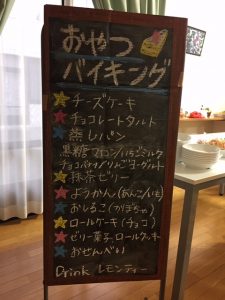 おやつ
バイキング
チーズケーキ
チョコレートタルト
蒸しパン
黒糖マロン/いちごミルク
チョコバナナ/りんごヨーグルト
抹茶ゼリー
ようかん(あんこ/いも)
おしるこ(かぼちゃ)
ロールケーキ(チョコ)
ゼリー菓子、ロールクッキー
おせんべい
Drink レモンティー